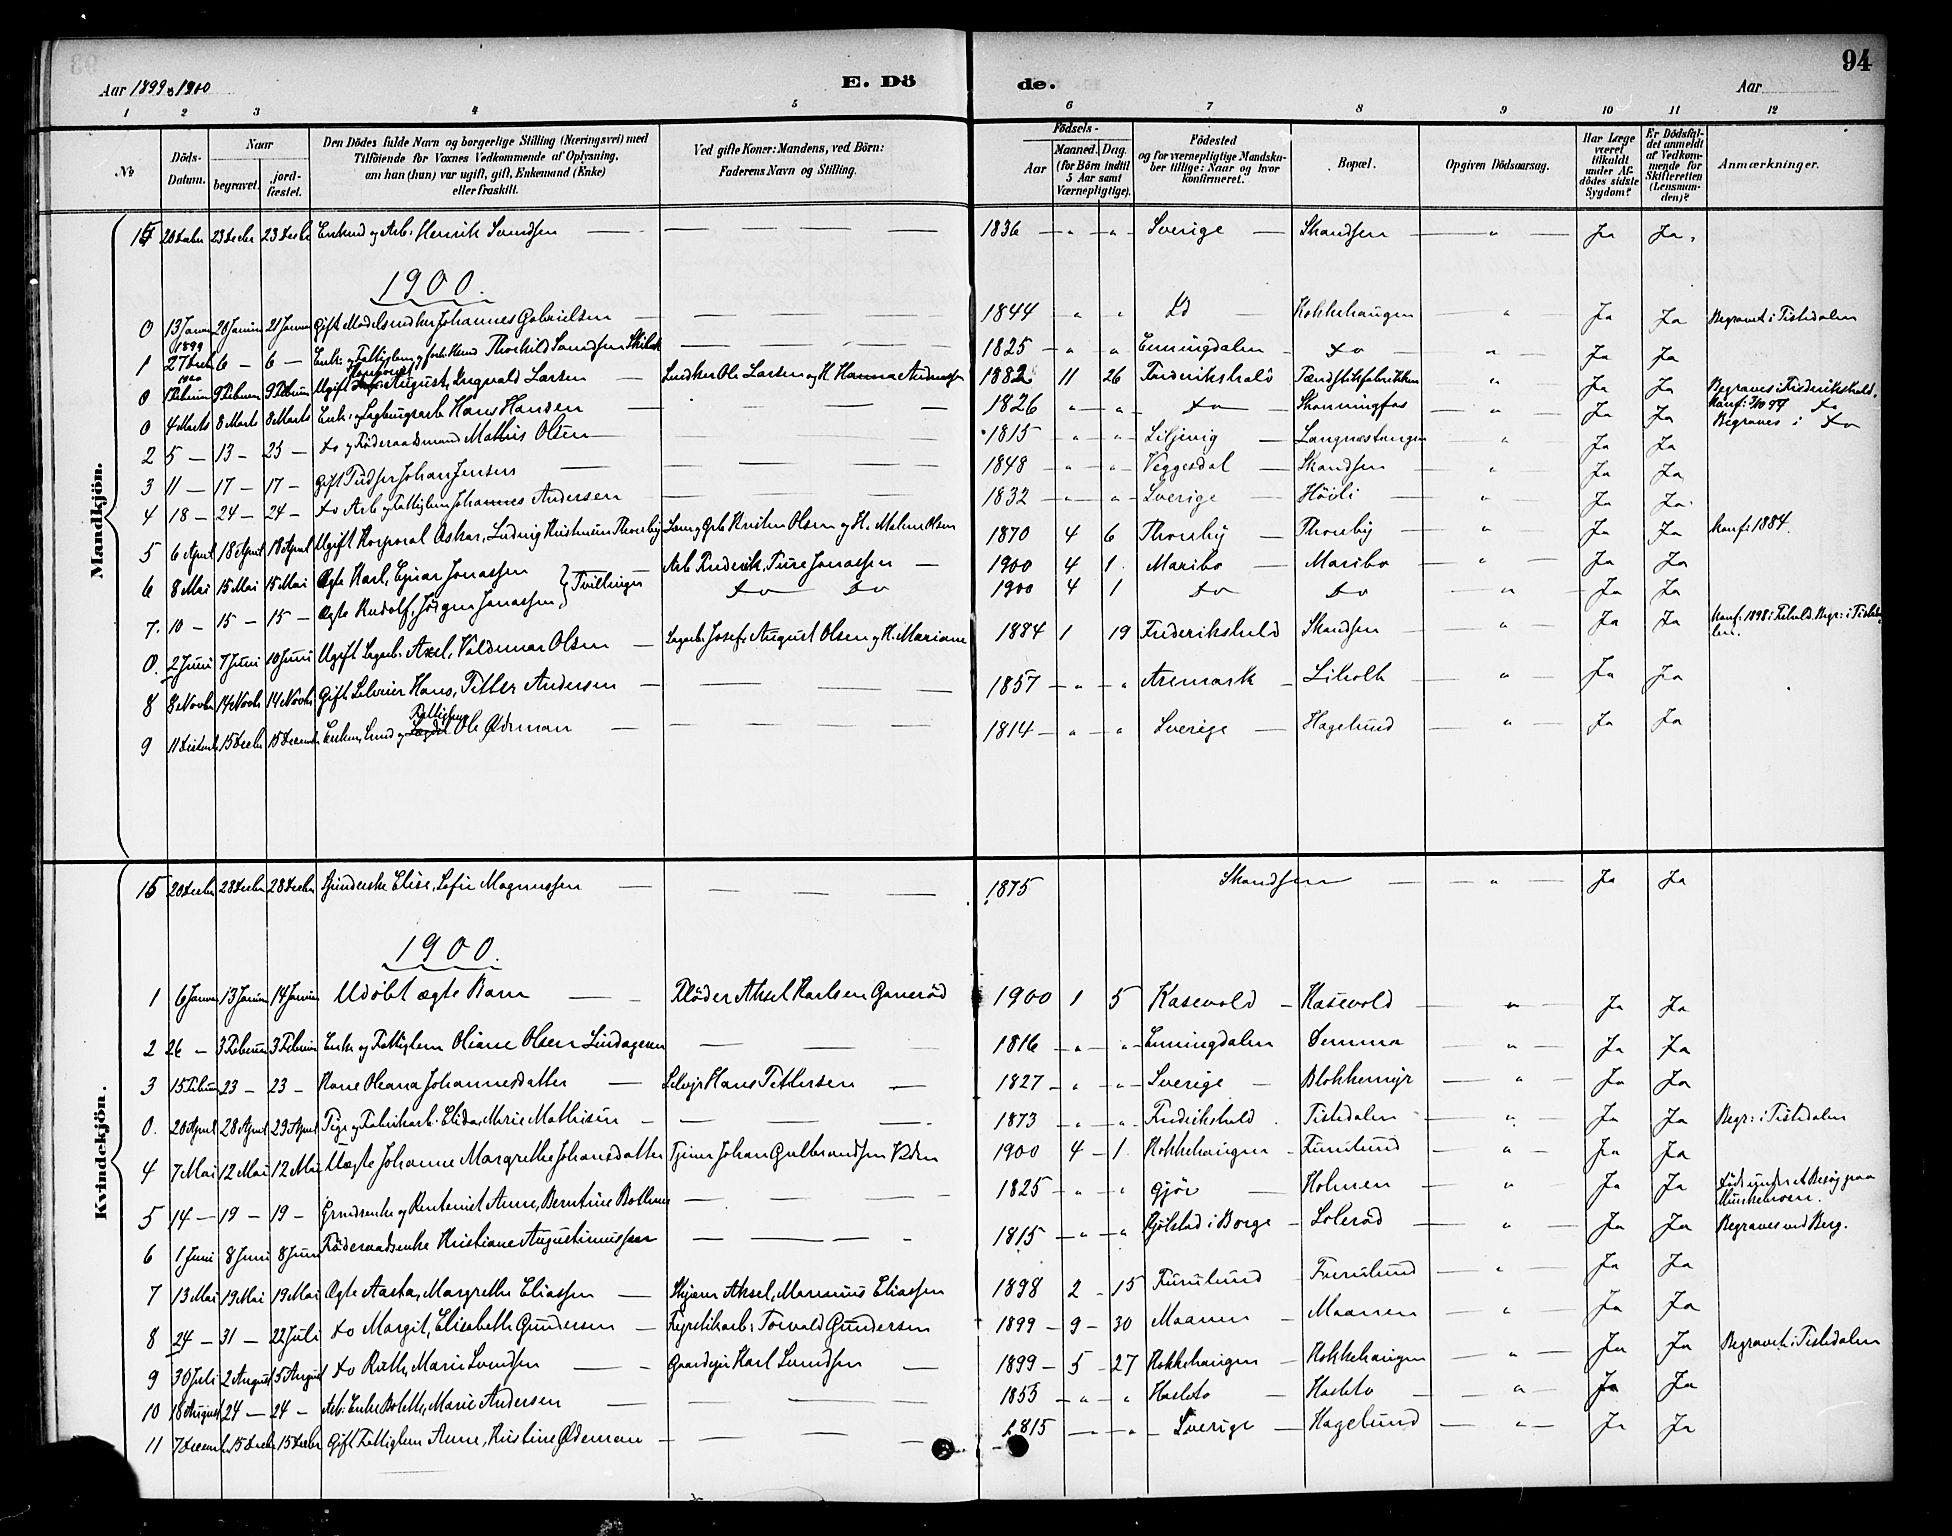 94
Aar 1899 & 1900
E. Dö
de.
Aar
1 2 3 4 5 6 7 8 9 10 11 12
No
Döds-Datum.
Naar
begravet.
jord-fæstet.
Den Dödes fulde Navn og borgerlige Stilling (Næringsvei) med
Tilföiende for Voxnes Vedkommende af Oplysning,
om han (hun) var ugift, gift, Enkemand (Enke)
eller fraskilt.
Ved gifte Koner: Mandens, ved Börn:
Faderens Navn og Stilling.
Födsels-
Aar
Maaned. Dag.
(for Börn indtil
5 Aar samt
Værnepligtige).
Födested
og for værnepligtige Mandska-
ber tillige: Naar og hvor
konfirmeret.
Bopæl.
Opgiven Dödsaarsag.
Har Læge
været
tilkaldt
under Af-
dödes sidste
Sygdom?
Er Dödsfal-
det anmeldt
af Vedkom-
mende for
Skifteretten
(Lensman-
den)?
Anmærkninger.
Mandkjön.
20 Decbr 23 Decbr 23 Decbr Enkmd og Arb. Henrik Svendsen — — 1836 — " — " — Sverige — Skandsen — " — Ja Ja.
1900.
0 13 Januar 20 Januar 21 Januar Gift Johannes Gabrielsen — — 1844 " " Id — Kokkehaugen — " Ja Ja Begravet i Tistedalen
1899
1 27 Decbr 6 — 6 — Thorkild Svendsen — — 1825 — " — " Enningdalen — do — " Ja Ja
1900
0 9 Februar 9 Februar Ugift August, Ingvald Larsen — Ole Larsen og H. Hanna Andersen 1882 11 26 Frederikshald Tændstikfabrikken " Ja Ja Begraves i Frederikshald.
0 4 Marts 8 Marts 8 Marts Enk: og Sagbrugsarb Hans Hansen — — 1826 — " — " do — Skonningfos — " Ja Ja Begraves i do
2 5 — 13 — 25 — do og Föderaadsmand Mathis Olsen — 1815 — " — " Liljevig — Langnæstangen " Ja Ja
3 11 — 17 — 17 — Gift Johan Jensen — — 1848 — " — " Veggesdal — Skandsen — " Ja Ja
4 18 — 24 — 24 — do Arb og Fattiglem Johannes Andersen — — 1832 — " — " — Sverige — Höili — " Ja Ja
5 6 April 18 April 18 April Ugift Korporal Oskar, Ludvig Thoreby Kristen Olsen og H. Malene Olsen 1870 4 6 Thoreby — Thoreby — " Ja Ja Konf: 1884.
6 8 Mai 15 Mai 15 Mai Ægte Karl, Ejnar Jonassen } Tvillinger Arb Frederik, Ture Jonassen — 1900 4 1. Maribo — Maribo — " — Ja Ja
7. 10 — 15 — 15 — Ægte Rudolf, Jörgen Jonassen do do 1900 4 1 do do — " — Ja Ja
0. 2 Juni 7 Juni 10 Juni Ugift Axel, Valdemar Olsen — Josef, August Olsen og H. Mariane 1884 1 19 Frederikshald Skandsen — " Ja Ja
8 8 Novbr 14 Novbr 14 Novbr Gift Selveier Hans, Petter Andersen — — 1857 — " — " Aremark — Liholt — " Ja Ja
9 11 Decbr 15 Decbr 15 Decbr Fattiglem Ole Ødeman — — 1814 — " — " Sverige — Hagelund — " Ja Ja
Kvindekjön.
15 20 Decbr 28 Decbr 28 Decbr Elise, Sofie Magnussen — — 1875 Skandsen — " — Ja Ja
1900.
1 6 Januar 13 Januar 14 Januar Udöbt ægte Barn — — Flöder Aksel Karlsen Ganeröd 1900 1 5 Kasevold — Kasevold — " — Ja Ja
2 26 — 3 Februar 3 Februar Enke og Fattiglem Oliane Olsen — — 1816 — " — " — Enningdalen Demma — " — Ja Ja
3 15 Februar 23 — 23 — Kone Oleana Johannesdatter — Selvejr Hans Pettersen — 1827 — " — " — Sverige — Blokkemyr — " — Ja Ja
0. 20 April 28 April 29 April Pige og Fabrikarb. Elida, Marie Mathisen — — 1873 — " — " — Frederikshald. Tistedalen — " Ja Ja Begr: i Tistedalen
4 7 Mai 12 Mai 12 Mai Uægte Johanne Margrethe Johansdatter Tjener Johan Gulbrandsen 1900 4 — 1. Kokkehaugen — Furulund — " — Ja Ja
5 14 — 19 — 19 — Anne, Berntine — — 1825 — " — " Gjöv — Holmen — " Ja Ja
6 1 Juni 8 Juni 8 Juni Föderaadsenke Kristiane Augustinussen — — 1815 — " — " i Borge — Soleröd — " Ja Ja Begraves ved Berg.
7 13 Mai 19 Mai 19 Mai Ægte Aasta, Margrethe Eliassen — Aksel, Marinius Eliassen 1898 2 — 15 Furulund — Furulund — " — Ja Ja
8 24 — 31 — 22 Juli do Margit, Elisabeth Gundersen — Torvald Gundersen 1899 — 9 — 30 Maanen — Maanen — " Ja Ja
9 30 Juli 2 August 5 August do Ruth, Marie Svendsen — — Gaardejer Karl Svendsen — 1899 — 5 — 27 Kokkehaugen — Kokkehaugen — " — Ja Ja Begravet i Tistedalen
10 18 August 24 — 24 — Arb: Enke Bolette, Marie Andersen — — 1853 — " — " — " — Ja Ja
11 7 Decbr 15 Decbr 15 Decbr Gift Fattiglem Anne, Kristine Ødeman — — 1815 — " — Sverige — Hagelund — " — Ja Ja